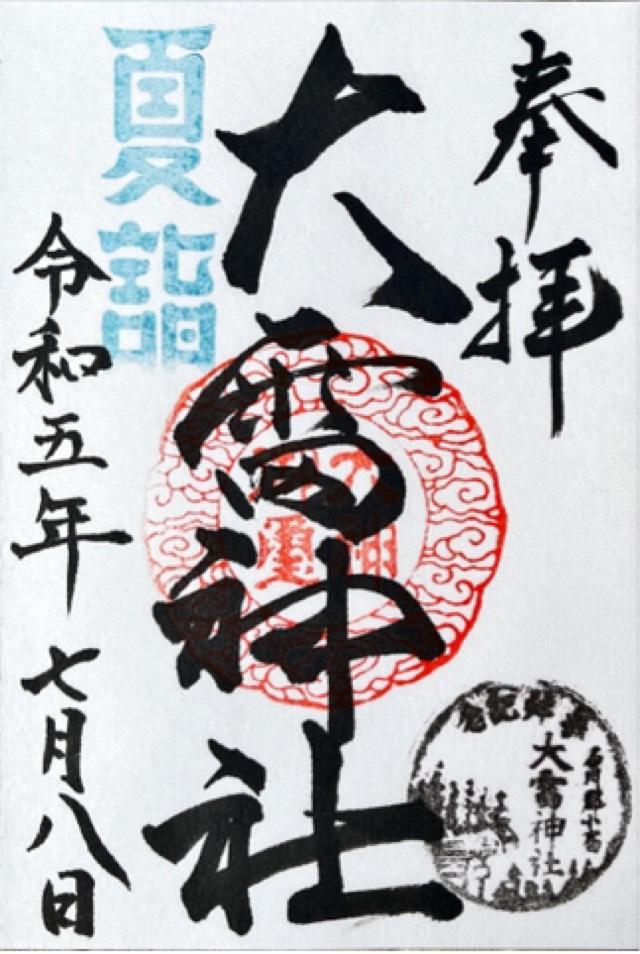 奉拝
夏詣
大雷神社
令和五年 七月八日
参拝記念
大雷神社